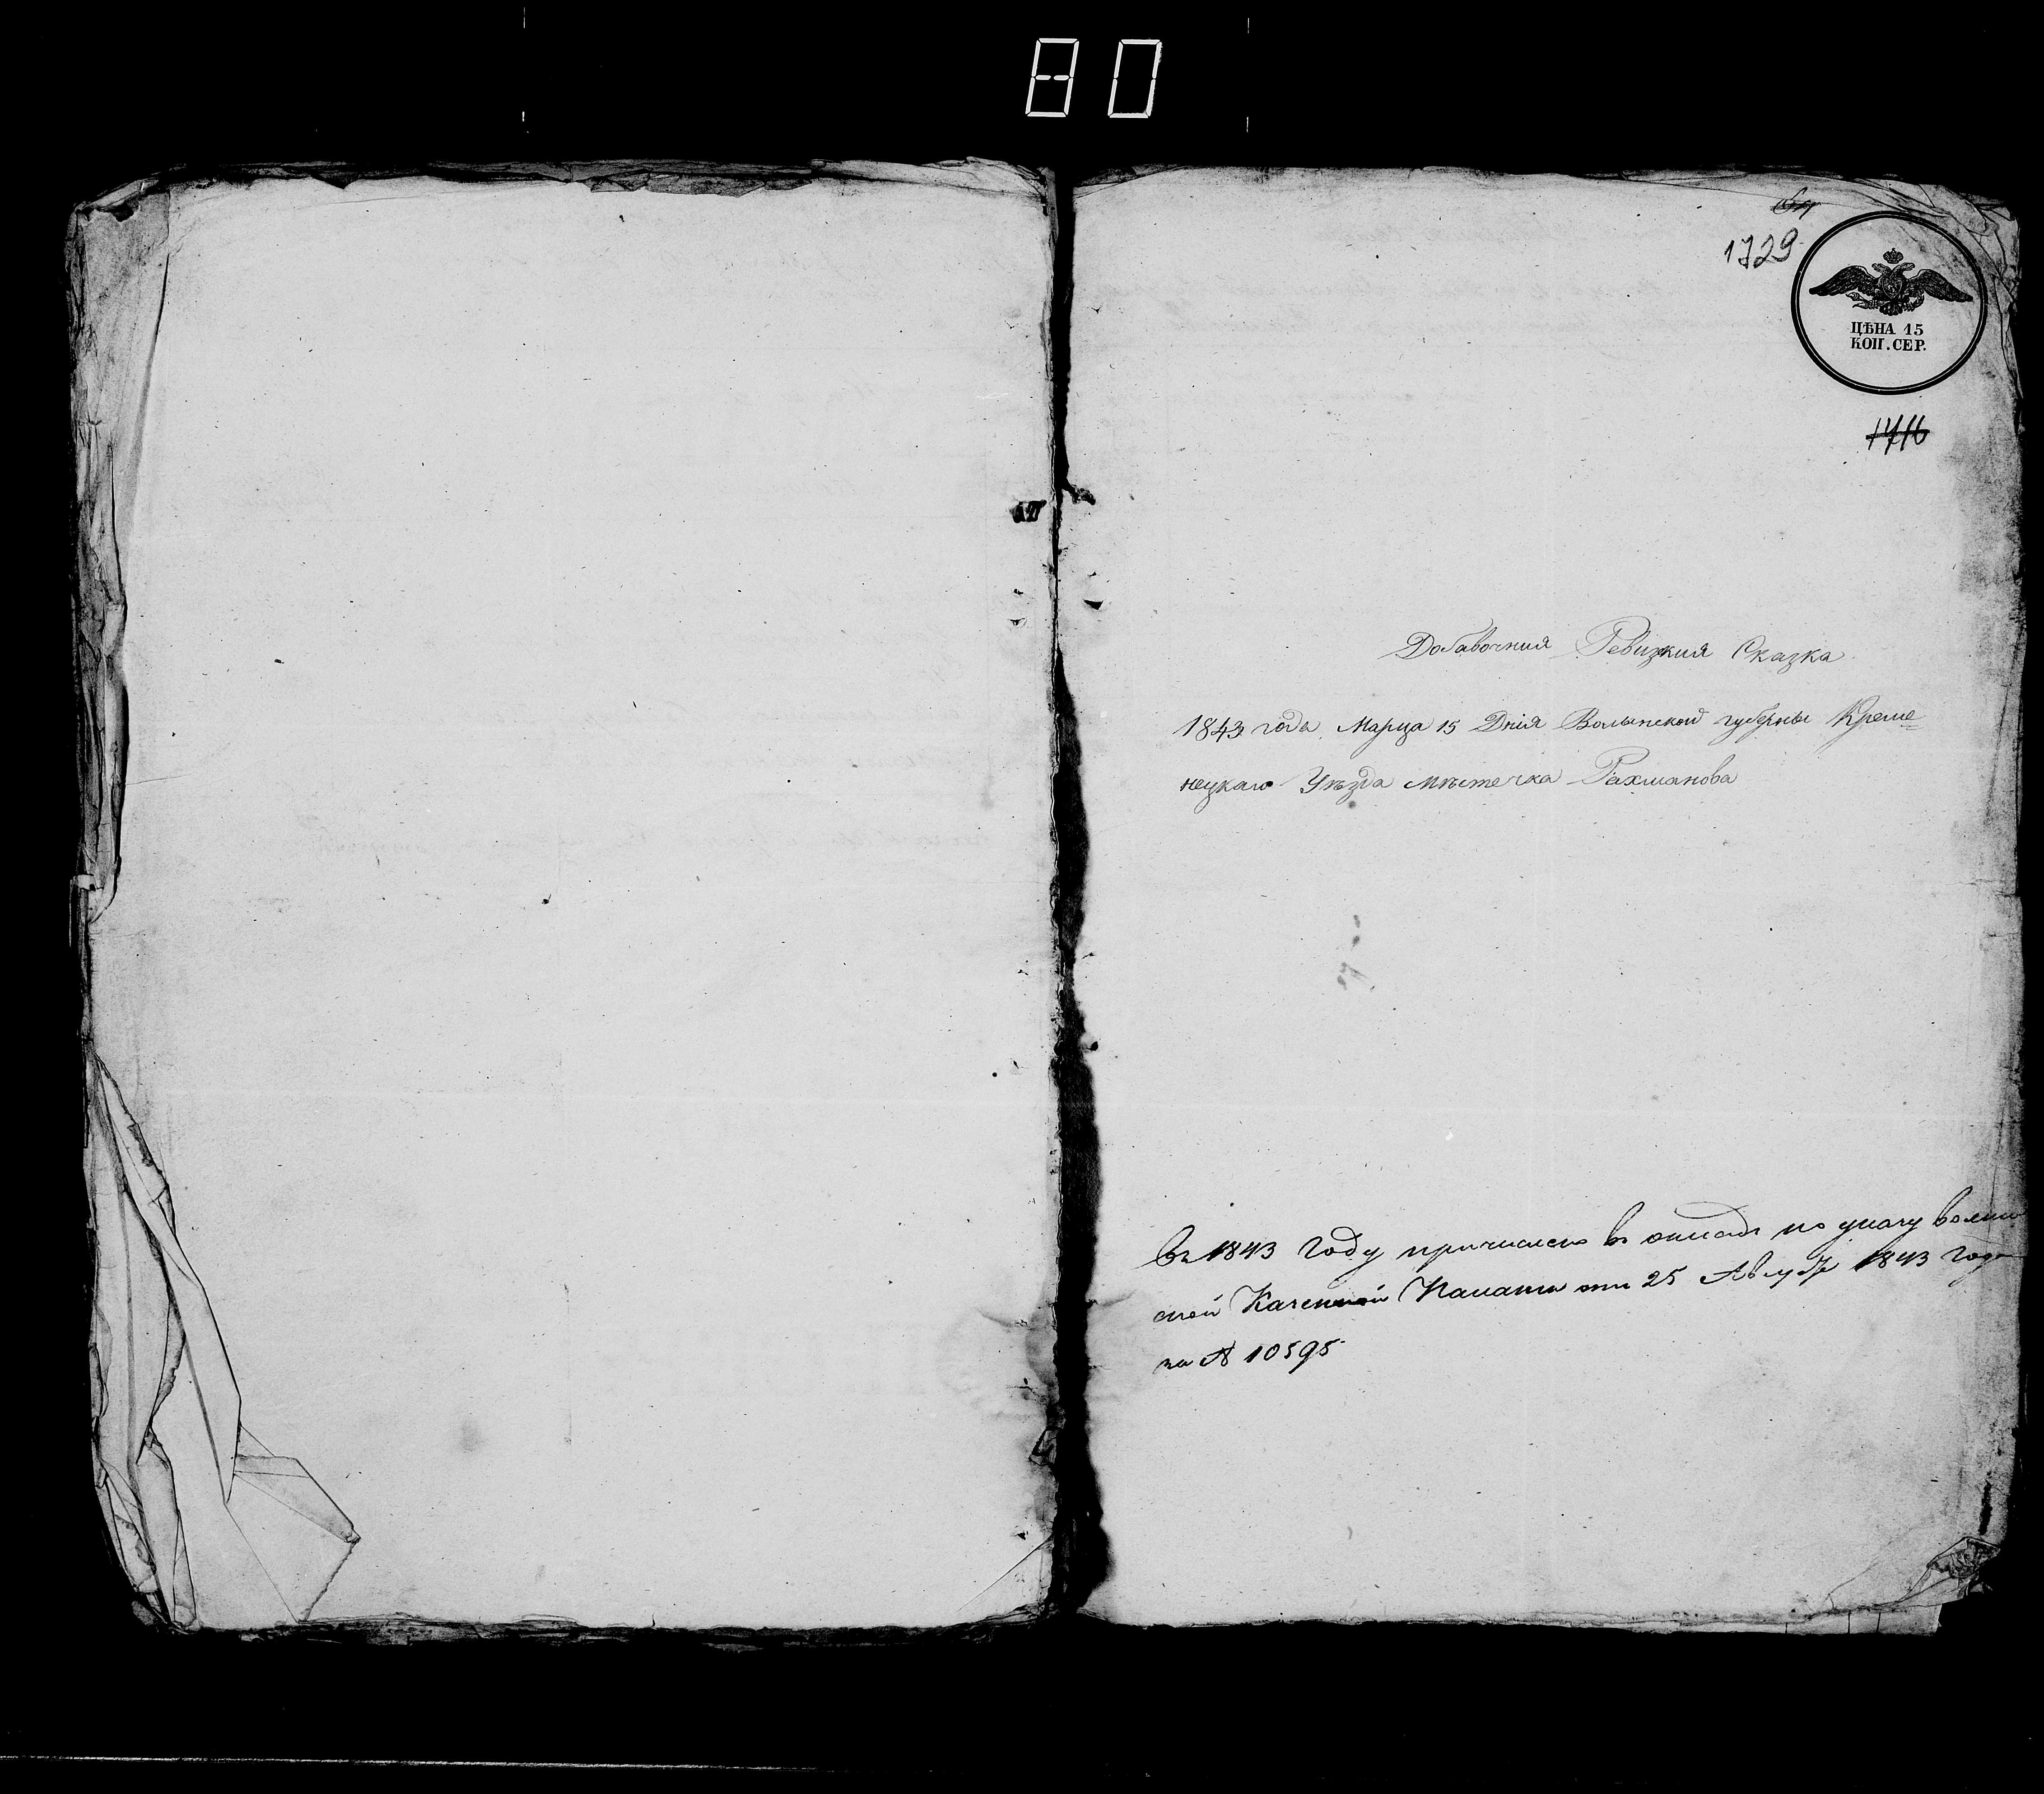 80
1729
ЦѢНА 15
КОП. СЕР.
1716
Добавочния Ревизкия Сказка
1843 года Марца 15 Дния Волынской губерны Креме=
нецкаго Уѣзда мѣстечка Рахманова
Въ 1843 году причислено въ окладъ по указу Волын
ской Казенной Палаты отъ 25 Августа 1843 года
за № 10595